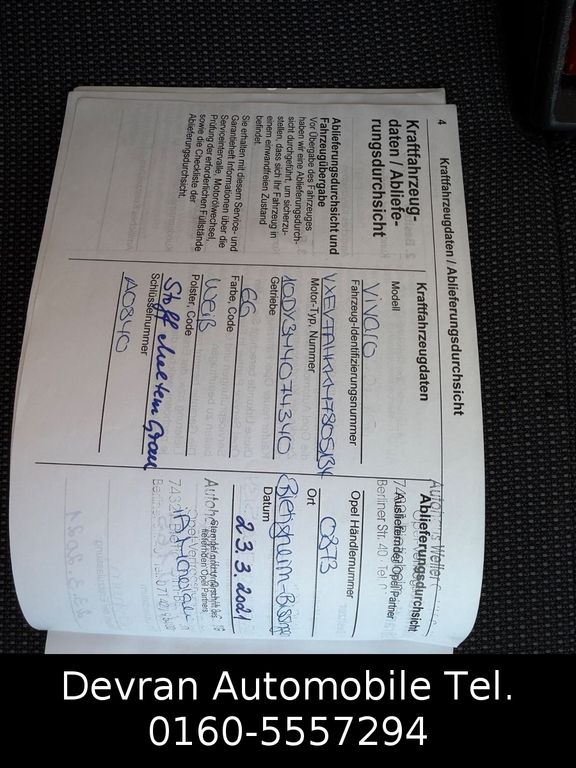 4
Kraftfahrzeugdaten / Ablieferungsdurchsicht
Kraftfahrzeug-
daten / Abliefe-
rungsdurchsicht
Ablieferungsdurchsicht und
Fahrzeugübergabe
Vor Übergabe des Fahrzeuges
haben wir eine Ablieferungsdurch-
sicht durchgeführt, um sicherzu-
stellen, dass sich Ihr Fahrzeug in
einem einwandfreien Zustand
befindet.
Sie erhalten mit diesem Service- und
Garantieheft Informationen über die
Serviceintervalle, Motorölwechsel,
Prüfung der erforderlichen Füllstände
sowie die Checkliste der
Ablieferungsdurchsicht.
Kraftfahrzeugdaten
Modell
Vivaro
Fahrzeug-Identifizierungsnummer
Motor-Typ, Nummer
10DYJH4074340
Getriebe
6G
Farbe, Code
Weiß
Polster, Code
Stoff Grau
Schlüsselnummer
A0840
Ablieferungsdurchsicht
Ausliefernder Opel Partner
Berliner Str. 40
Opel Händlernummer
Ort
Bietigheim-Bissingen
Datum
23.3.2021
Devran Automobile Tel.
0160-5557294